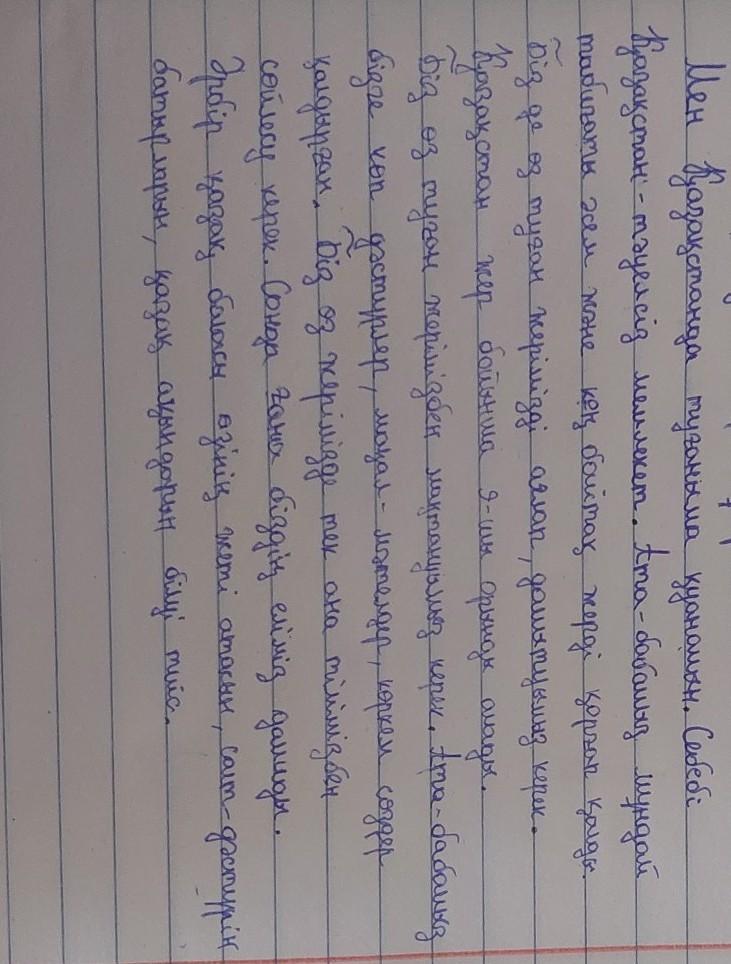 Мен Қазақстанда туғаныма қуанамын. Себебі
Қазақстан - тәуелсіз мемлекет. Ата-бабамыз мұндай
табиғаты әсем және кең байтақ жерді қорғап қалды.
Біз де өз туған жерімізді аялап, дамытуымыз керек.
Қазақстан жер бойынша 9-шы орынды алады.
Біз өз туған жерімізбен мақтануымыз керек. Ата-бабамыз
бізге көп дәстүрлер, мақал-мәтелдер, көркем сөздер
қалдырған. Біз өз жерімізде тек ана тілімізбен
сөйлесу керек. Сонда ғана біздің еліміз дамиды.
Әрбір қазақ баласы өзінің жеті атасын, салт-дәстүрін
батырларын, қазақ ақындарын білуі тиіс.